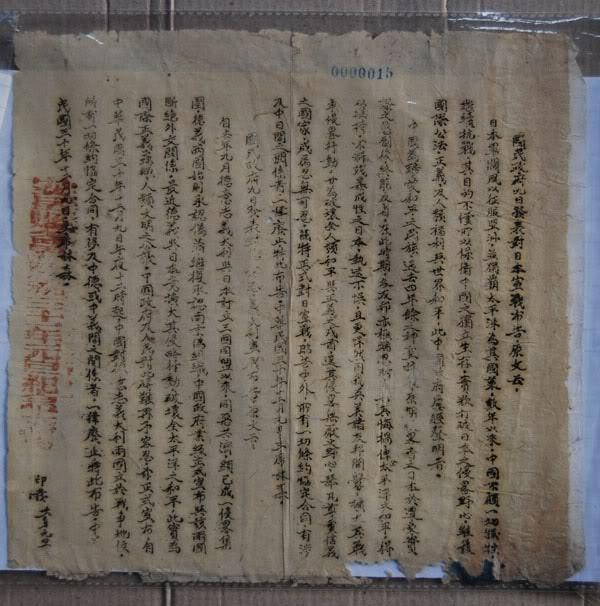 0000015
國民政府九日發表對日本宣戰布告,原文云。
日本軍閥夙以征服亞洲,並獨霸太平洋為其國策,數年以來,中國不顧一切犧牲
繼續抗戰,其目的不僅所以保衛中國之獨立生存,實欲打破日本之侵畧野心,維護
國際公法,正義及人類福利與世界和平,此中國政府屢經聲明者。
中國為酷愛和平之民族,過去四年餘之神聖抗戰,原期侵畧者之日本於遭受實
際之懲創後終能反省,在此時期,各友邦亦極端忍耐,冀其悔禍俾太平洋之和平,得
以維持,不料強暴成性之日本,執迷不悟,且更悍然向我英美諸友邦開釁,擴大其戰
爭侵畧行動,甘為破壞全人類和平與正義之戎首,逞其侵畧無厭之野心,舉凡尊重信義
之國家,咸屬忍無可忍,茲特正式對日宣戰,昭告中外,所有一切條約協定合同,有涉
及中日間之關係者,一律廢止,特此布告,中華民國三十年十二月九日,主席林森。
國民政府九日發表對德意宣戰布告原文云。
自去年九月德意志義大利與日本訂立三國同盟以來,同惡共濟,顯已成一侵畧集
團,德義兩國始則承認偽滿,繼復承認南京偽組織,中國政府業經正式宣布與該兩國
斷絕外交關係,最近德義與日本竟擴大其侵畧行動,破壞全太平洋之和平,此實為
國際正義之蟊賊,人類文明之公敵,中國政府及人民對此碍難再予容忍,茲正式宣布,自
中華民國三十年十二月九日午夜十二時起,中國對德意志義大利兩國立於戰爭地位,
所有一切條約協定合同,有涉及中德或中義間之關係者,一律廢止,特此布告,中華
民國三十年十二月九日,主席林森。